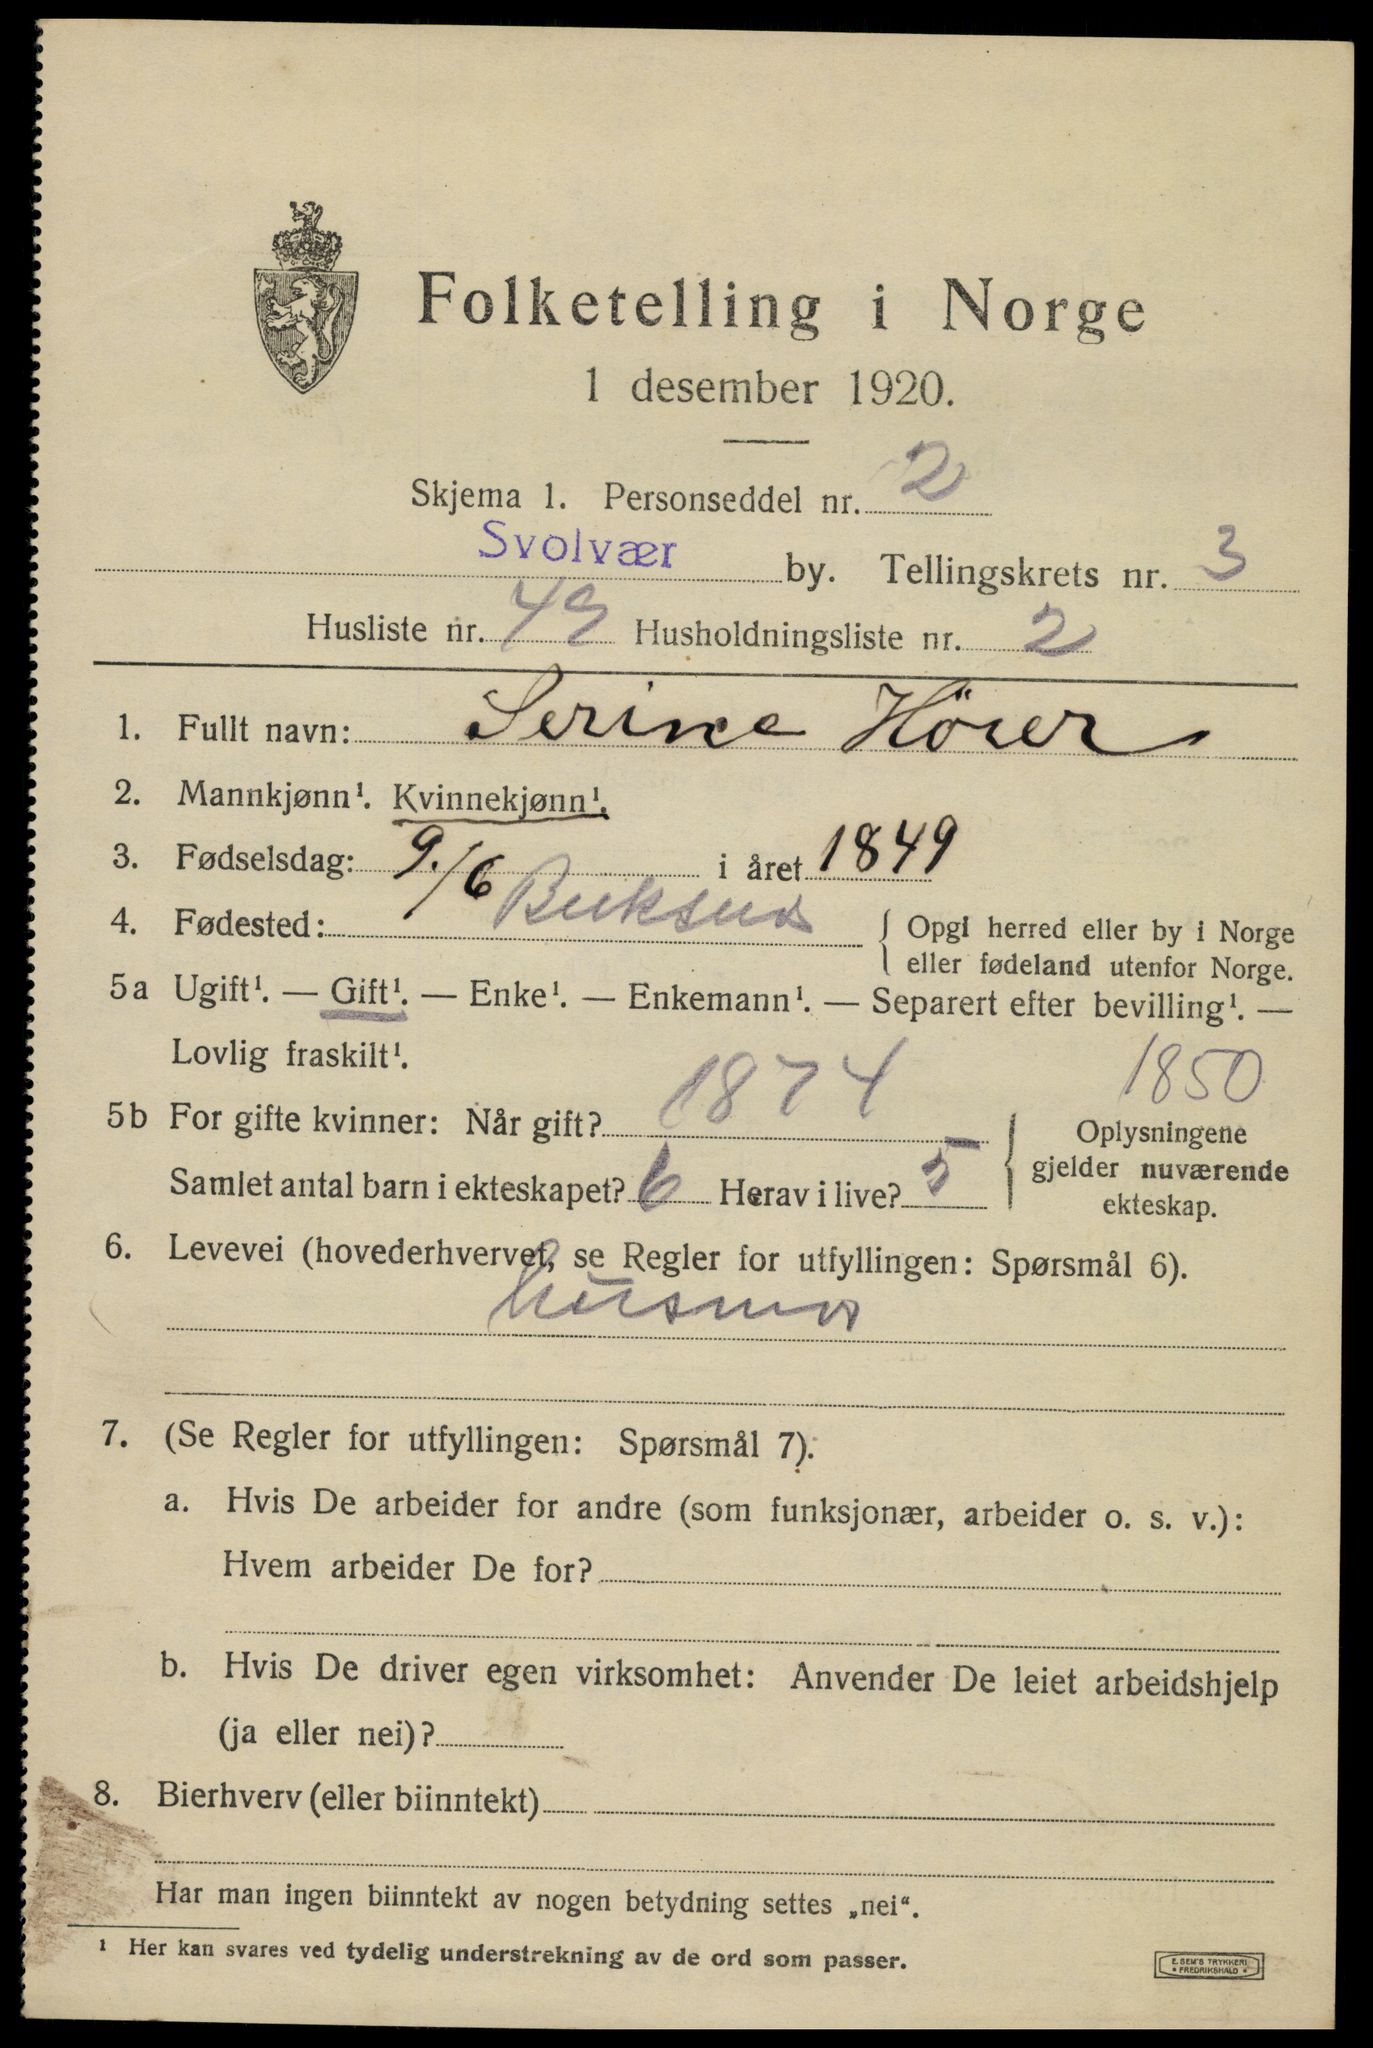 Folketelling i Norge
1 desember 1920.
Skjema 1. Personseddel nr. 2
Svolvær by. Tellingskrets nr. 3
Husliste nr. 49 Husholdningsliste nr. 2
1. Fullt navn: Serine Höier
2. Mannkjønn¹. Kvinnekjønn¹.
3. Fødselsdag: 9./6 i året 1849
4. Fødested: Buksnes { Opgi herred eller by i Norge
eller fødeland utenfor Norge.
5a Ugift¹. — Gift¹. — Enke¹. — Enkemann¹. — Separert efter bevilling¹. —
Lovlig fraskilt¹.
1850
5b For gifte kvinner: Når gift? 1874 Oplysningene
gjelder nuværende
ekteskap.
Samlet antal barn i ekteskapet? 6 Herav i live? 5
6. Levevei (hovederhvervet, se Regler for utfyllingen: Spørsmål 6).
husmor
7. (Se Regler for utfyllingen: Spørsmål 7).
a. Hvis De arbeider for andre (som funksjonær, arbeider o. s. v.):
Hvem arbeider De for?
b. Hvis De driver egen virksomhet: Anvender De leiet arbeidshjelp
(ja eller nei)?
8. Bierhverv (eller biinntekt)
Har man ingen biinntekt av nogen betydning settes „nei“.
¹ Her kan svares ved tydelig understrekning av de ord som passer.
E. SEM'S TRYKKERI
* FREDRIKSHALD *